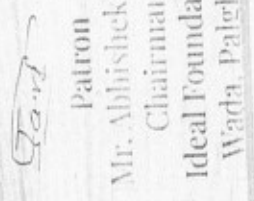 Patron
Mr. Abhishek
Chairman
Ideal Founda
Wada, Palgh